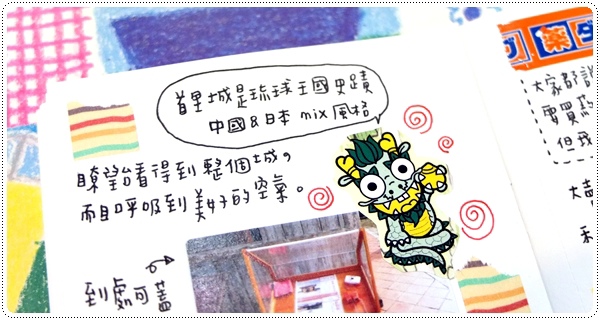 首里城是琉球王國史蹟
中國&日本 mix 風格
瞭望台看得到整個城,
而且呼吸到美好的空氣。
到處可蓋
大家都說
要買
但我
藥